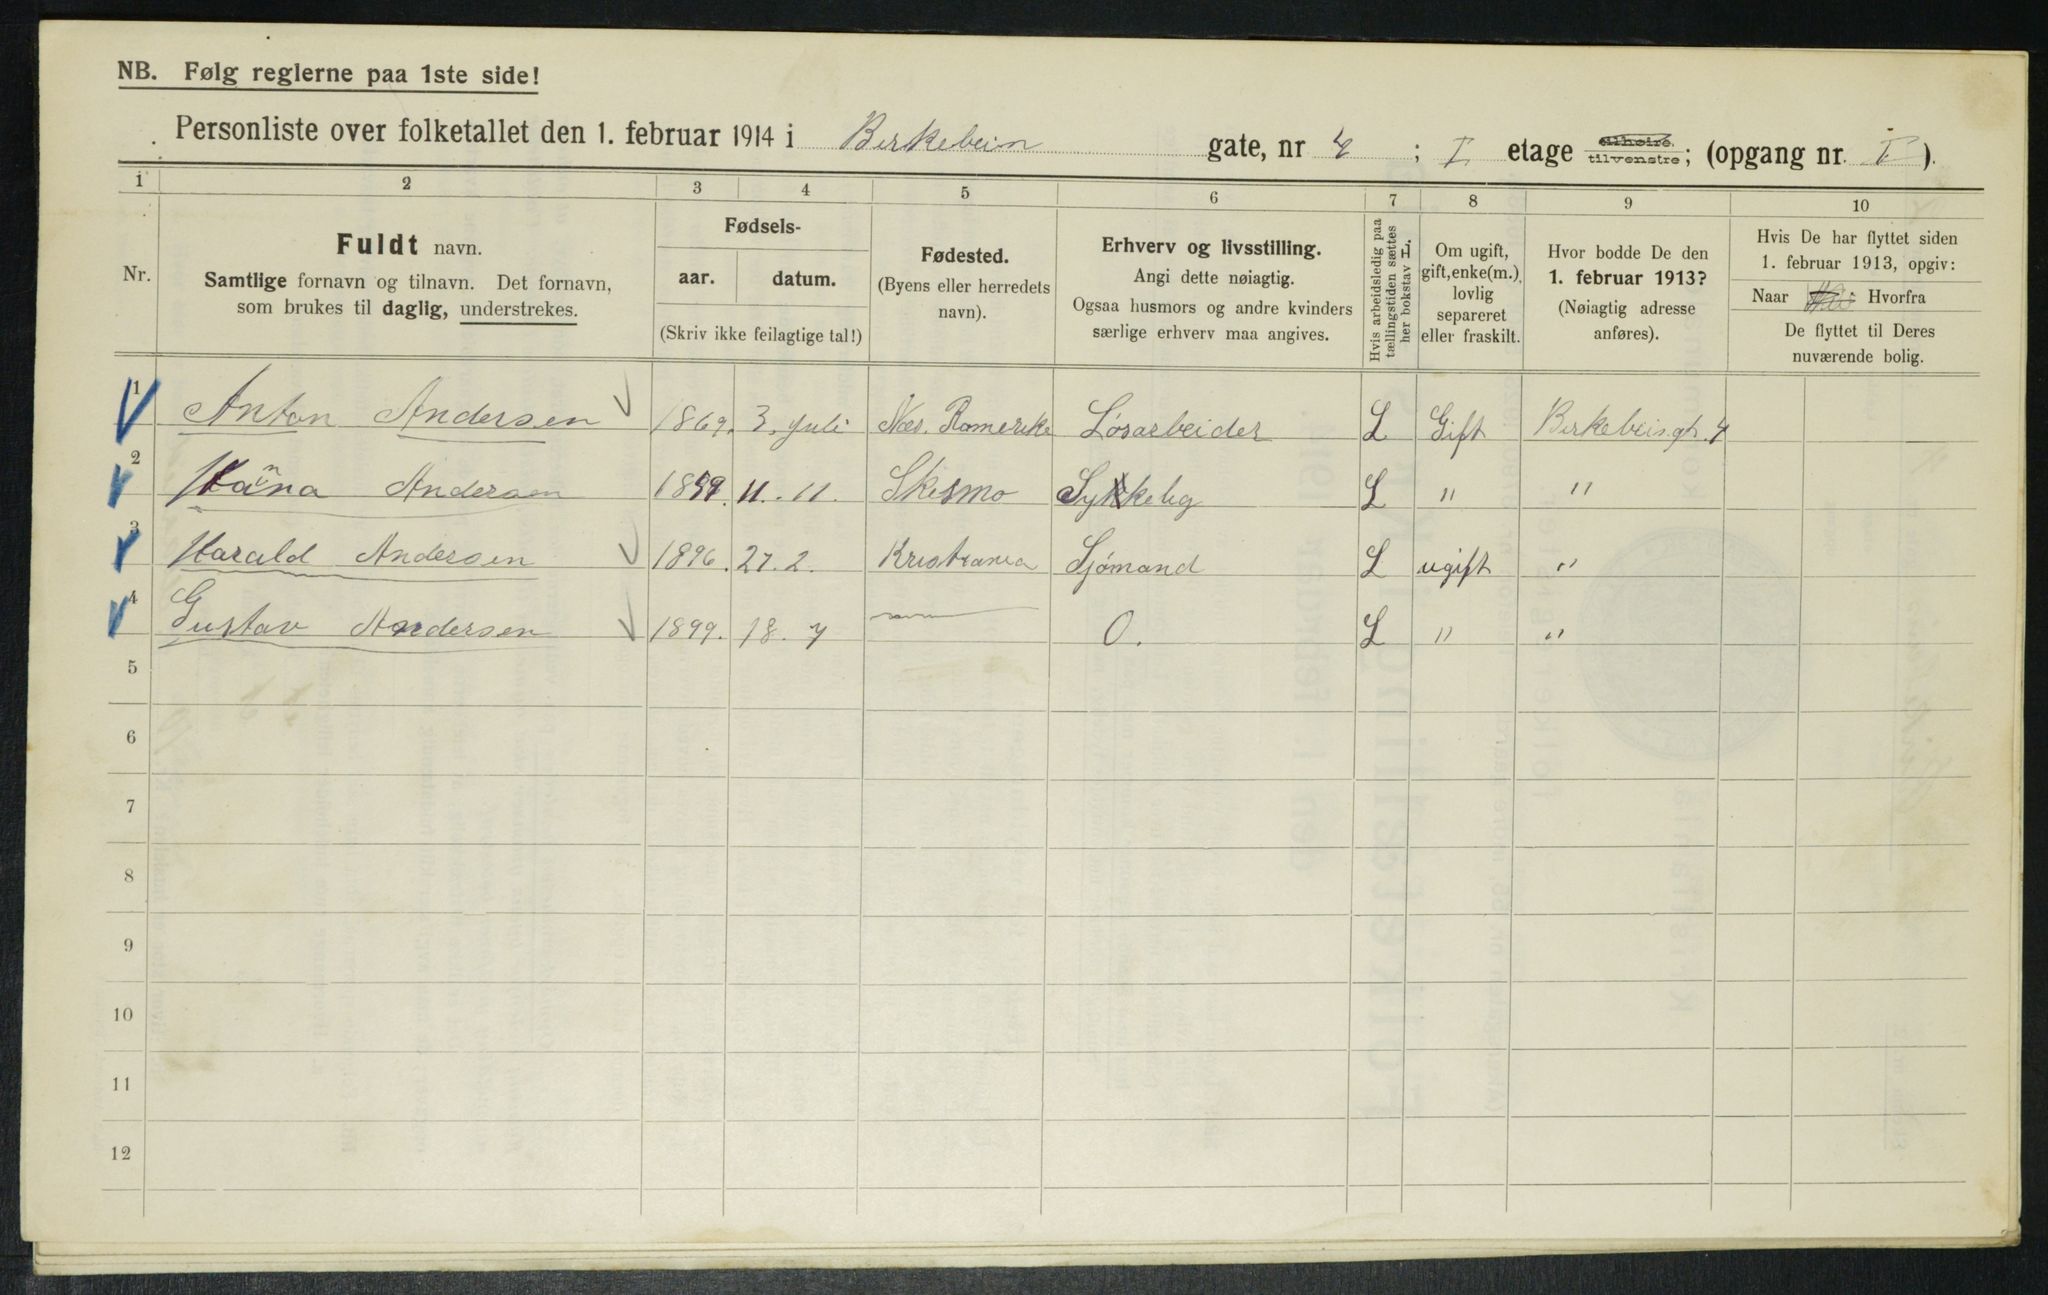 NB. Følg reglerne paa 1ste side!
Personliste over folketallet den 1. februar 1914 i Birkebein gate, nr 4 ; I etage tilhøire. tilvenstre; (opgang nr. I ).
1 2 3 4 5 6 7 8 9 10
Nr.
Fuldt navn.
Samtlige fornavn og tilnavn. Det fornavn,
som brukes til daglig, understrekes.
Fødsels-
aar. datum.
(Skriv ikke feilagtige tal!)
Fødested.
(Byens eller herredets
navn).
Erhverv og livsstilling.
Angi dette nøiagtig.
Ogsaa husmors og andre kvinders
særlige erhverv maa angives.
Hvis arbeidsledig paa
tællingstiden sættes
her bokstav L.
Om ugift,
gift, enke(m.),
lovlig
separeret
eller fraskilt.
Hvor bodde De den
1. februar 1913?
(Nøiagtig adresse
anføres).
Hvis De har flyttet siden
1. februar 1913, opgiv:
Naar Hvorfra
De flyttet til Deres
nuværende bolig.
1 Anton Andersen 1869. 3. Juli Næs. Romerike Løsarbeider L Gift Birkebeingt. 4
2 Hanna Andersen 1859. 11. 11. Skesmo Sykkelig L " "
3 Harald Andersen 1896. 27. 2. Kristiania Sjømand L ugift "
4 Gustav Andersen 1899. 18. 7 O. L " "
5
6
7
8
9
10
11
12